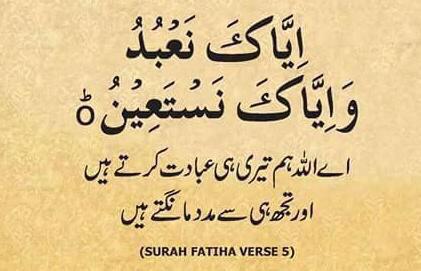 اِيَّاكَ نَعْبُدُ
وَاِيَّاكَ نَسْتَعِيْنُ ؕ
اے اللہ ہم تیری ہی عبادت کرتے ہیں
اور تجھ ہی سے مدد مانگتے ہیں
(SURAH FATIHA VERSE 5)